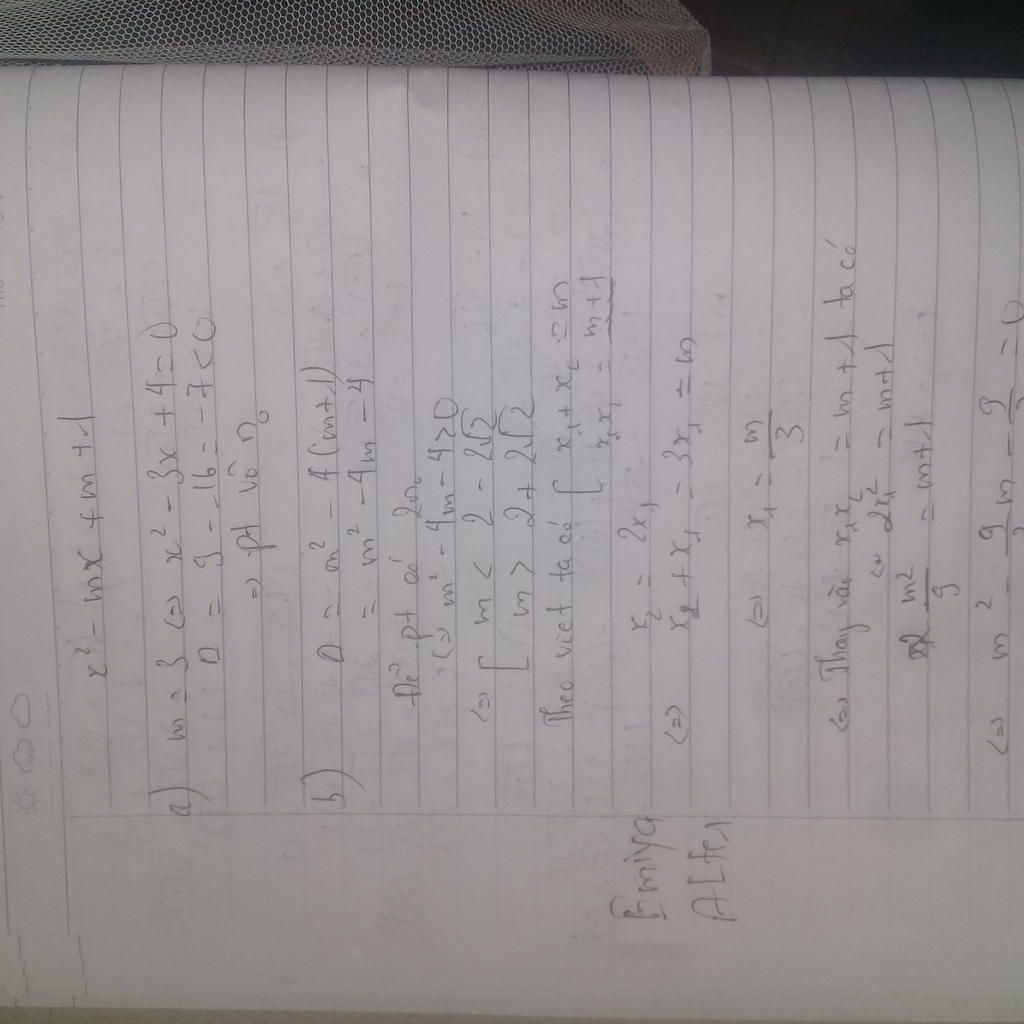 x² - mx + m + 1
a) m = 3 (=) x² - 3x + 4 = 0
Δ = 9 - 16 = -7 < 0
=> pt vô n₀
b) Δ = m² - 4(m+1)
= m² - 4m - 4
Để pt có 2n₀
(=) m² - 4m - 4 > 0
(=) [ m < 2 - 2√2
[ m > 2 + 2√2
Theo viet ta có [ x₁ + x₂ = m
[ x₁x₂ = m+1
x₂ = 2x₁
Emiya
(=) x₂ + x₁ = 3x₁ = m
Alter
(=) x₁ = m/3
(=) Thay vào x₁x₂ = m+1 ta có
(=) 2x₁² = m+1
2 m²/9 = m+1
(=) m² - 9/2 m - 9/2 = 0